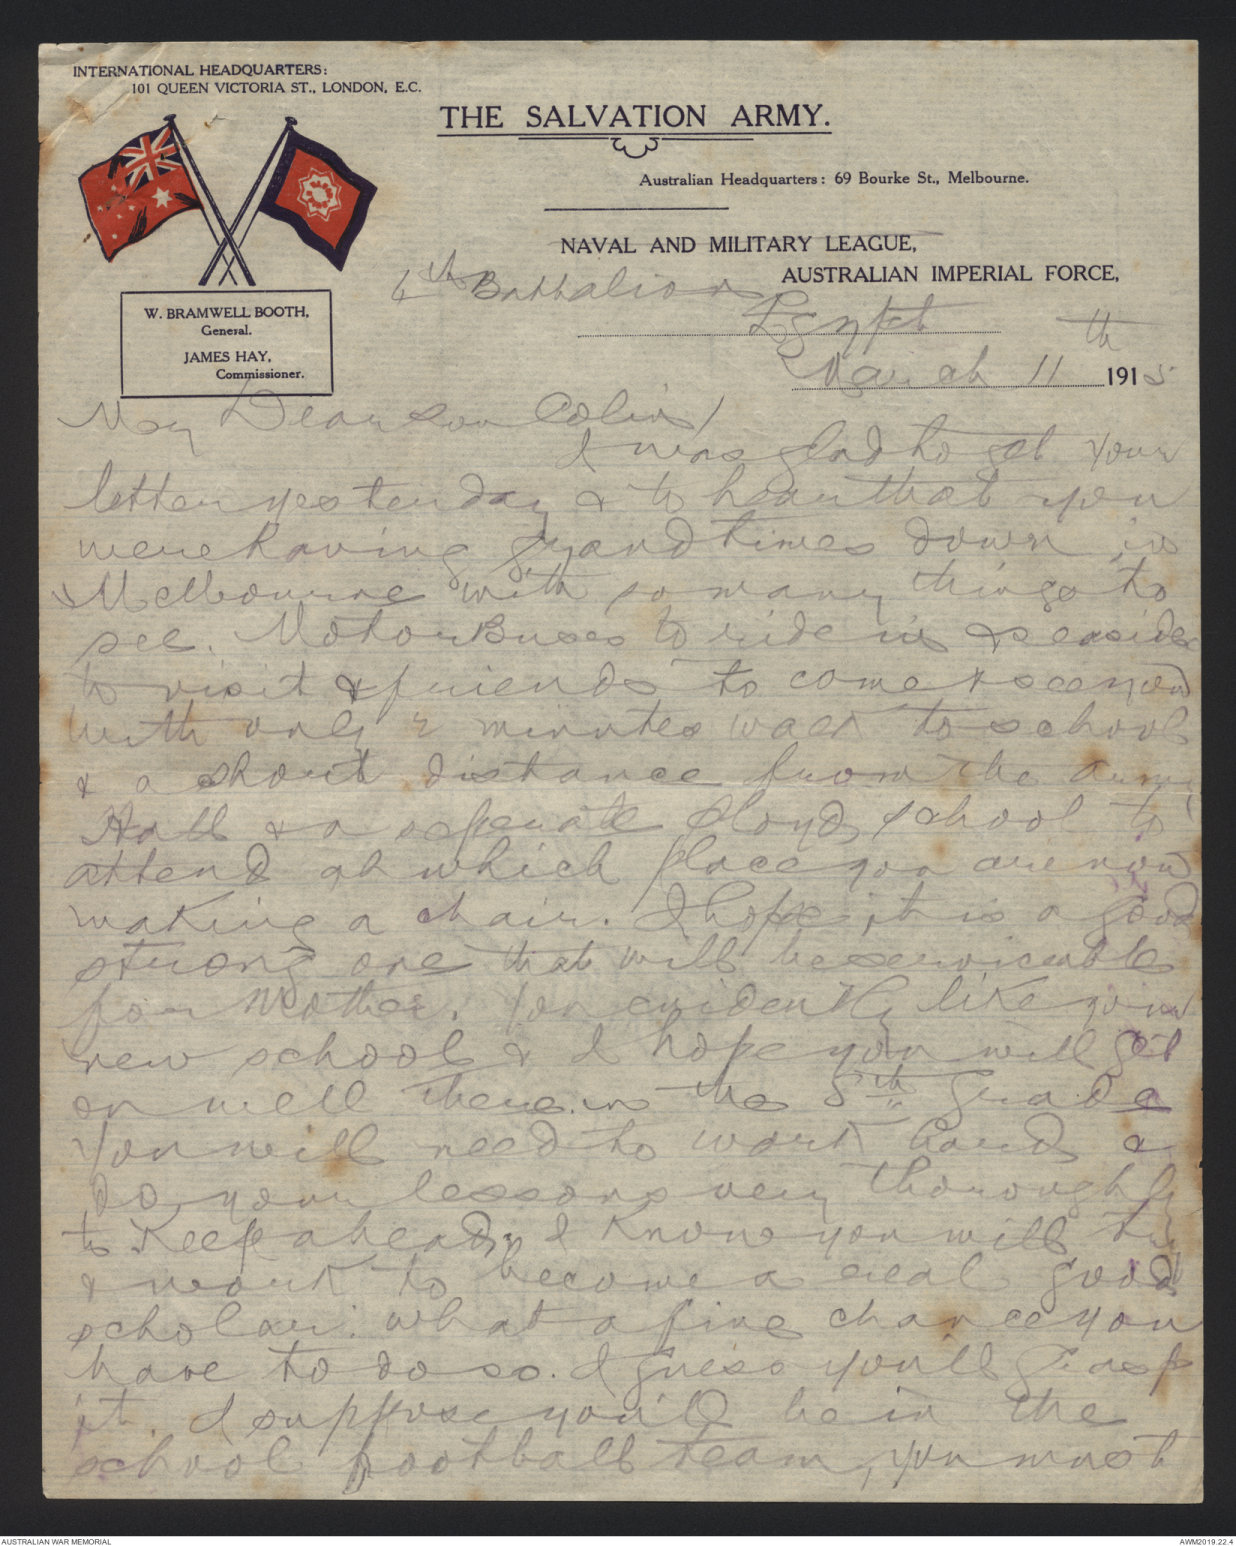 INTERNATIONAL HEADQUARTERS:
101 QUEEN VICTORIA ST., LONDON, E.C.
THE SALVATION ARMY.
Australian Headquarters: 69 Bourke St., Melbourne.
NAVAL AND MILITARY LEAGUE,
AUSTRALIAN IMPERIAL FORCE,
W. BRAMWELL BOOTH,
General.
JAMES HAY,
Commissioner.
th Battalion
Egypt
March 11th 1915
My Dear son Colin/
I was glad to get your
letter yesterday & to hear that you
were having grand times down in
Melbourne with so many things to
see. Motor Buses to ride in & seaside
to visit & friends to come & see you
with only 2 minutes walk to school
& a short distance from the army
Hall & a seperate Sloyd school to
attend at which place you are now
making a chair. I hope it is a good
strong one that will be serviceable
for Mother. You evidently like your
new school & I hope you will get
on well there in the 5th Grade
You will need to work hard &
do your lessons very thoroughly
to keep ahead, I know you will try
& work to become a real good
scholar. what a fine chance you
have to do so. I guess you'll grasp
it. I suppose you'll be in the
school football team, you must
AUSTRALIAN WAR MEMORIAL
AWM2019.22.4